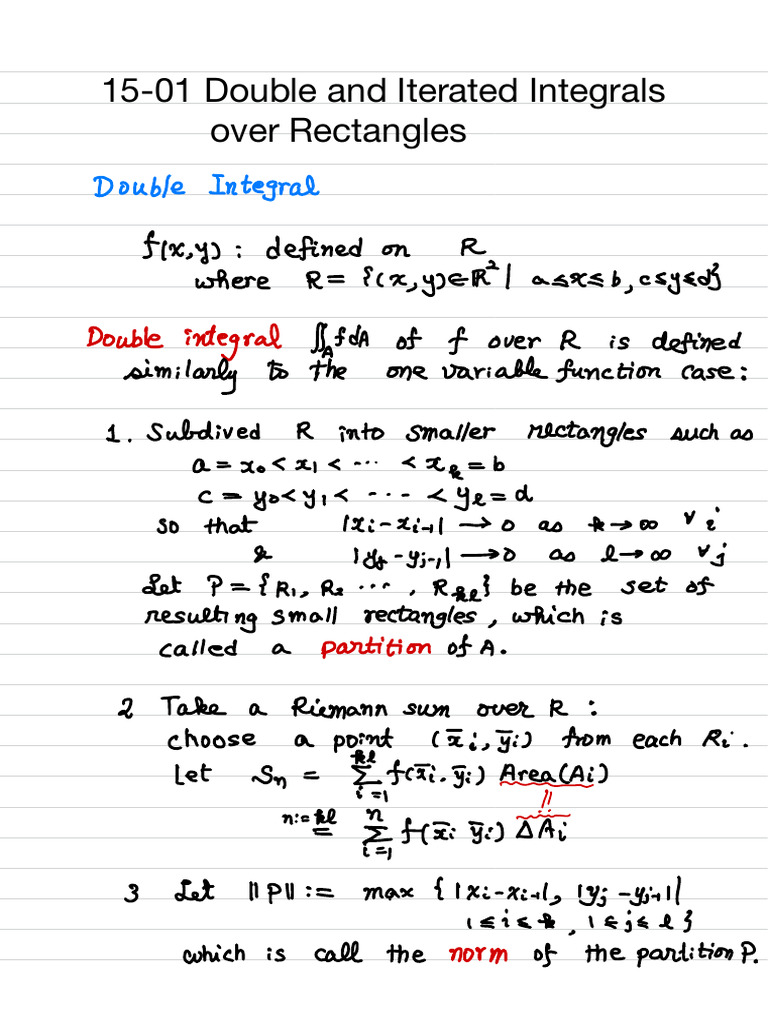 15-01 Double and Iterated Integrals
over Rectangles
Double Integral
f(x,y) : defined on R
where R = {(x,y)∈ℝ² | a≤x≤b, c≤y≤d}
Double integral ∬_A f dA of f over R is defined
similarly to the one variable function case:
1. Subdived R into smaller rectangles such as
a = x₀ < x₁ < ⋯ < x_k = b
c = y₀ < y₁ < ⋯ < y_l = d
so that |x_i - x_{i-1}| → 0 as k → ∞ ∀ i
& |y_j - y_{j-1}| → 0 as l → ∞ ∀ j
Let P = {R₁, R₂ ⋯, R_{kl}} be the set of
resulting small rectangles, which is
called a partition of A.
2 Take a Riemann sum over R :
choose a point (x̄_i, ȳ_i) from each R_i.
Let S_n = ∑_{i=1}^{kl} f(x̄_i, ȳ_i) Area(A_i)
n:=kl = ∑_{i=1}^{n} f(x̄_i ȳ_i) ΔA_i
3 Let ||P|| := max {|x_i - x_{i-1}|, |y_j - y_{j-1}|
1≤i≤k, 1≤j≤l}
which is call the norm of the partition P.